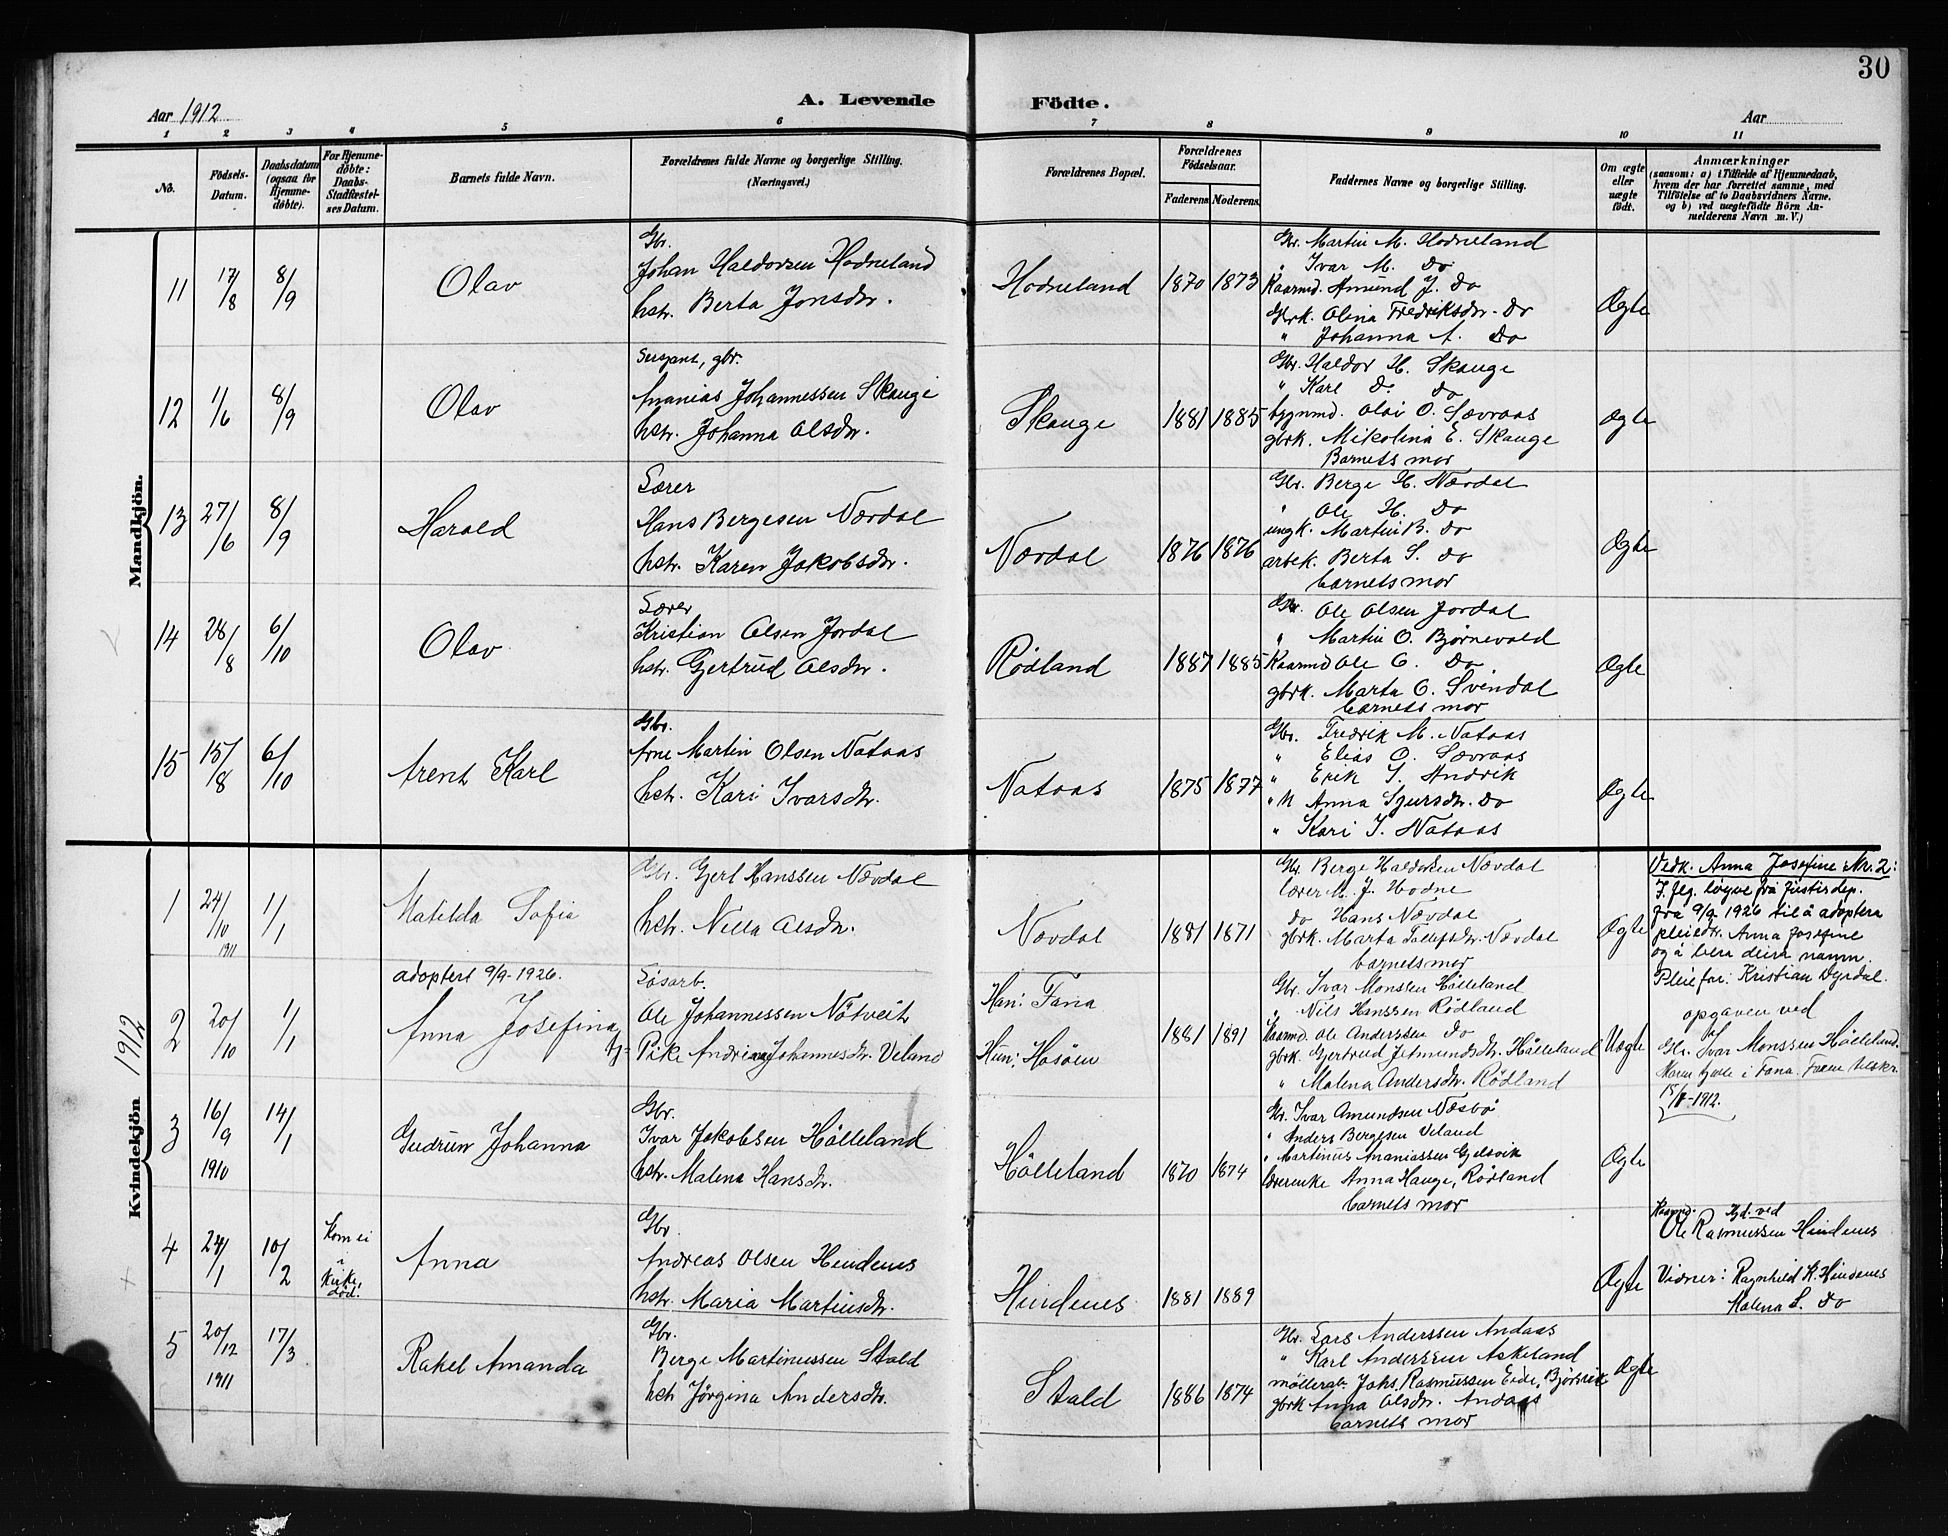 30
Aar 1912
A. Levende Födte.
Aar
1 2 3 4 5 6 7 8 9 10 11
No.
Födsels-Datum.
Daabsdatum (ogsaa for Hjemme-döbte).
For Hjemme-döbte: Daabs-Stadfæstel-ses Datum.
Barnets fulde Navn.
Forældrenes fulde Navne og borgerlige Stilling.
(Næringsvei.)
Forældrenes Bopæl.
Forældrenes Födselsaar.
Faderens Moderens
Faddernes Navne og borgerlige Stilling.
Om ægte eller uægte födt.
Anmærkninger
(saasom: a) i Tilfælde af Hjemmedaab,
hvem der har forrettet samme, med
Tilföielse af to Daabsvidners Navne.
og b) ved uægtefödte Börn An-
melderens Navn m. V.)
Mandkjön.
11 17/8 8/9 Olav
Gbr.
Johan Haldorsen Hodneland
hstr. Berta Jonsdtr.
Hodneland 1870 1873
Gbr. Martin M. Hodneland
" Ivar M. Do
Kaarmd. Amund J. Do
Gbrk. Olina Fredriksdtr. Do
" Johanna A. Do
Ægte
12 1/6 8/9 Olav
Sersjant, gbr.
Ananias Johannessen Skauge
hstr. Johanna Olsdtr.
Skauge 1881 1885
Gbr. Haldor H. Skauge
" Karl D. Do
bygnmd. Olai O. Sævraas
gbrk. Mikolina E. Skauge
Barnets mor
Ægte
13 27/6 8/9 Harald
Lærer
Hans Bergesen Nævdal
hstr. Karen Jakobsdtr.
Nævdal 1876 1876
Gbr. Berge H. Nævdal
" Ole H. Do
ungk. Martin B. Do
arbek. Berta S. Do
barnets mor
Ægte
14 28/8 6/10 Olav
Lærer
Kristian Olsen Jordal
hstr. Gjertrud Olsdtr.
Rödland 1887 1885
Gbr. Ole Olsen Jordal
" Martin O. Bjørnevald
Kaarmd Ole O. Do
gbrk. Marta O. Svindal
barnets mor
Ægte
15 15/8 6/10 Arent Karl
Gbr.
Arne Martin Olsen Nataas
hstr. Kari Ivarsdtr.
Nataas 1875 1877
Gbr. Fredrik M. Nataas
" Elias O. Sævraas
" Erik S. Andvik
" k Anna Sjursdtr. Do
" Kari I. Nataas
Ægte
Kvindekjön 1912
1 24/10 1911 1/1 Matilda Sofia
Gbr. Gjert Hanssen Nævdal
hstr. Nilla Olsdtr.
Nævdal 1881 1871
Gbr. Berge Haldorsen Nævdal
lærer M. J. Hodne
do Hans Nævdal
gbrk. Marta Tollefsdtr. Nævdal
barnets mor
Ægte
Vedk. Anna Josefine Nr. 2:
I flg. løyve frå justisdep.
frå 9/9 1926 til å adoptera
pleiedtr. Anna Josefine
og å bera deira namn.
Pleiefar: Kristian Dyrdal.
adoptert 9/9-1926.
2 20/10 1/1 Anna Josefina
Løsarb.
Ole Johannessen Nötveit
Pike Andrina Johannesdtr. Veland
Han: Fana
Hun: Hosöen
1881 1891
Gbr. Ivar Monsen Hölleland
" Nils Hanssen Rödland
Kaarmd. Ole Anderssen Do
gbrk. Gjertrud Jetmundsdtr. Hölleland
" Malena Andersdtr. Rödland
Uægte
opgaven ved
Gbr. Ivar Monssen Hölleland.
15/1-1912.
3 16/9 1910 14/1 Gudrun Johanna
Gbr.
Ivar Jakobsen Hölleland
hstr. Malena Hansdtr.
Hölleland 1870 1874
Gbr. Ivar Amundsen Næsbö
" Anders Bergesen Veland
" Martinus Ananiassen Gjelsvik
lærerenke Anna Hauge, Rödland
barnets mor
Ægte
4 24/1 10/2 Kom ei i kirke, död. Anna
Gbr
Andreas Olsen Hindenes
hstr. Maria Martinsdtr.
Hindenes 1881 1889
Ægte
Kaarmd. Hjd. ved
Ole Rasmussen Hindenes
Vidner: Ragnhild K. Hindenes
Malena S. Do
5 20/12 1911 17/3 Rakel Amanda
Gbr.
Berge Martinussen Stald
hstr Jørgina Andersdtr.
Stald 1886 1874
Gbr. Lars Anderssen Andaas
" Karl Anderssen Askeland
möllerab. Johs. Rasmussen Eide, Bjørsvik
gbrk Anna Olsdtr. Andaas
barnets mor
Ægte